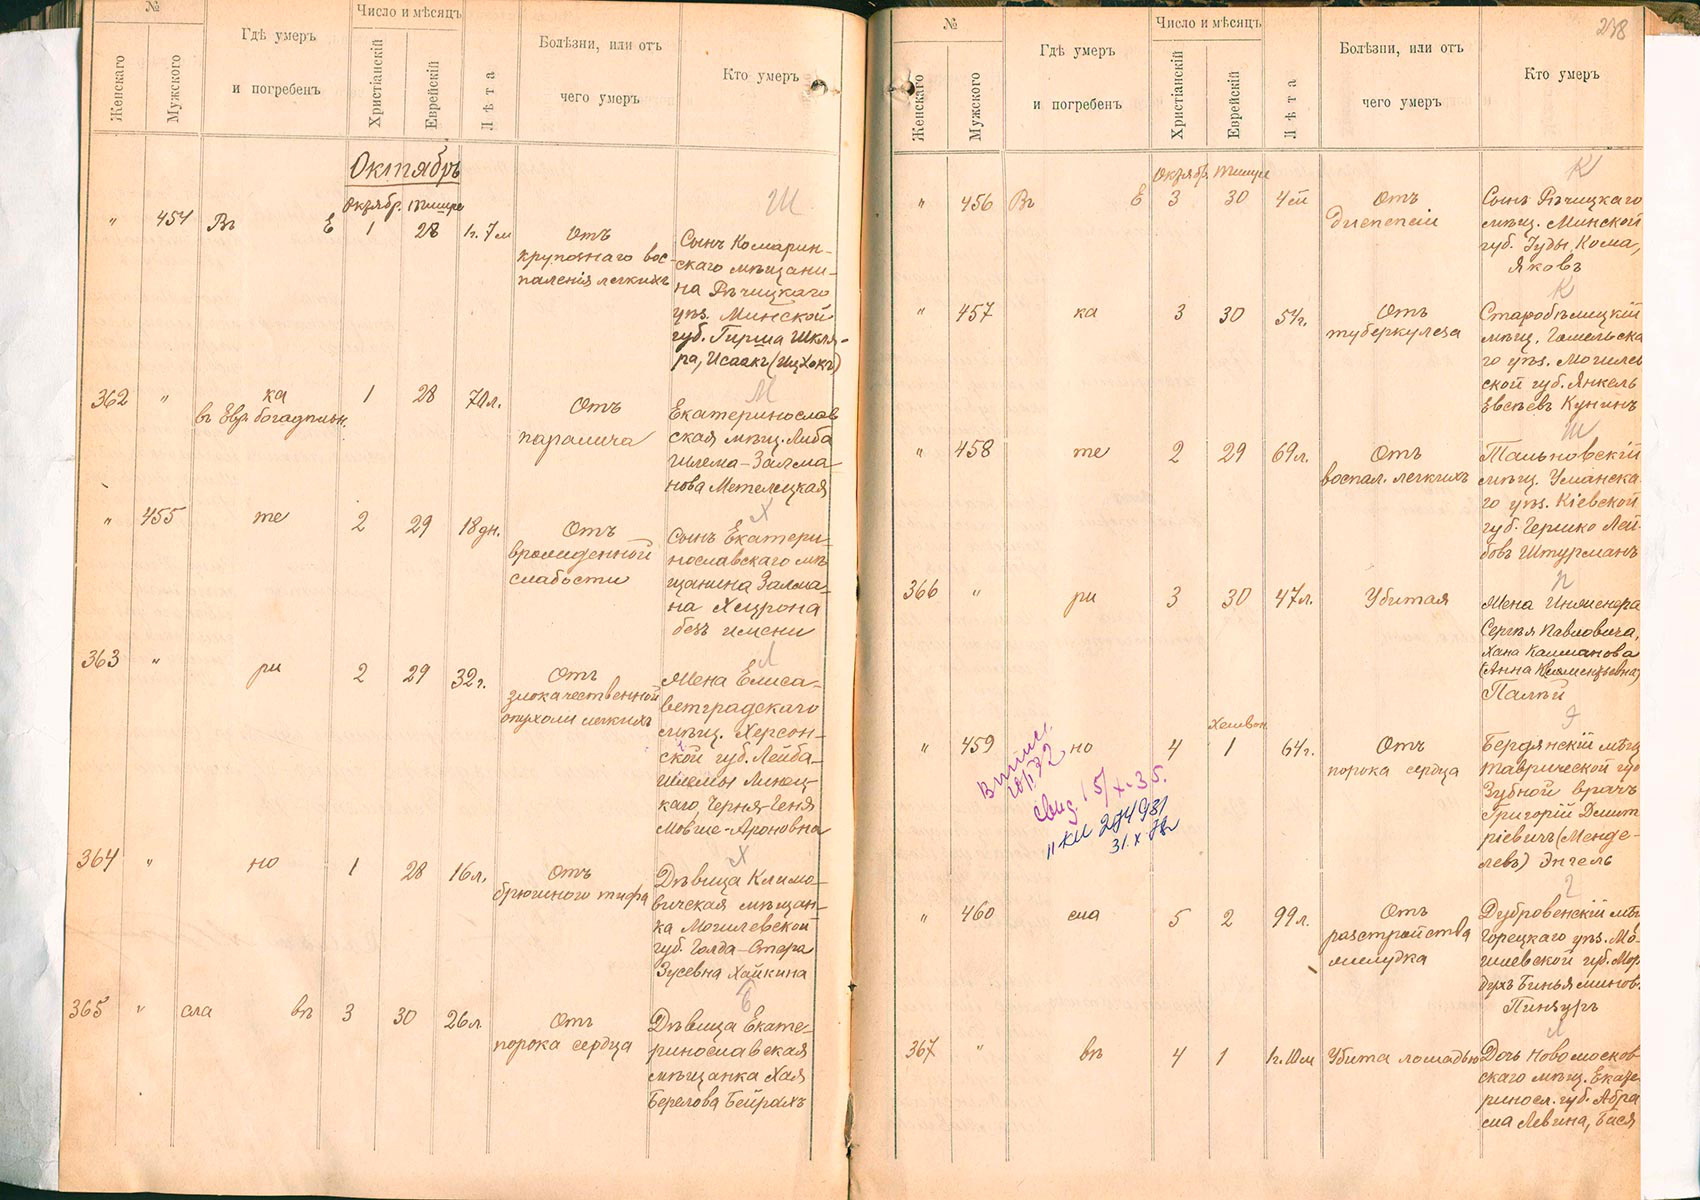 №
Число и мѣсяцъ
Женскаго
Мужского
Гдѣ умеръ
и погребенъ
Христіанскій
Еврейскій
Лѣта
Болѣзни, или отъ
чего умеръ
Кто умеръ
Октябрь
Октябр. Тишре
Ш
" 454 Въ Е 1 28 1г. 7м
Отъ
крупознаго вос-
паленія легкихъ
Сынъ Комарин-
скаго мѣщани-
на Рѣчицкаго
уѣз. Минской
губ. Гирша Шкля-
ра, Исаакъ (Ицхокъ)
362 " ка 1 28 70л.
въ Евр. богадѣльн.
Отъ
паралича
М
Екатеринослав
ская мѣщ. Либа
Шлема-Залма
нова Метелицкая
" 455 те 2 29 18 дн.
Отъ
врожденной
слабости
Х
Сынъ Екатери-
нославскаго мѣ
щанина Залма-
на Хецрона
безъ имени
363 " ри 2 29 32г.
Отъ
злокачественной
опухоли легкихъ
Л
Жена Елиса-
ветградскаго
мѣщ. Херсон-
ской губ. Лейба-
Шлемы
каго Черня-Геня
Мовше-Ароновна
364 " но 1 28 16л.
Отъ
брюшного тифа
Х
Дѣвица Климо-
вичская мѣщан-
ка Могилевской
губ. Голда-Стера
Зусевна Хайкина
365 " сла въ 3 30 26л
Отъ
порока сердца
Б
Дѣвица Екате-
ринославская
мѣщанка Хая
Берелова Бейрахъ
238
№
Число и мѣсяцъ
Женскаго
Мужского
Гдѣ умеръ
и погребенъ
Христіанскій
Еврейскій
Лѣта
Болѣзни, или отъ
чего умеръ
Кто умеръ
Октябр. Тишре
К
" 456 Въ Е 3 30
Отъ
диспепсіи
Сынъ Рѣчицкаго
мѣщ. Минской
губ. Іуды Кома,
Яковъ
К
" 457 ка 3 30 54г.
Отъ
туберкулеза
Старобѣлицкій
мѣщ. Гомельска
го уѣз. Могилев
ской губ. Янкель
Евсѣевъ Кунинъ
Ш
" 458 те 2 29 69л.
Отъ
воспал. легкихъ
Тальновскій
мѣщ. Уманска-
го уѣз. Кіевской
губ. Гершко Лей-
бовъ Штурманъ
П
366 " ри 3 30 47л.
Убитая
Жена Инженера
Сергѣя Павловича,
Хана Калманова
(Анна Климентьевна)
Палѣй
Э
Хешвон
" 459 но 4 1 64г.
Отъ
порока сердца
Бердянскій мѣщ
Таврической губ
Зубной врачъ
Григорій Дмит
ріевичъ (Менде-
левъ) Энгель
20/I 72
15/X-35.
II-КИ 294931
31.X.
" 460 сла 5 2 99л.
Отъ
разстройства
желудка
Дубровенскій мѣщ
Горецкаго уѣз. Мо-
гилевской губ. Мор
духъ Биньяминов.
367 " въ 4 1 1г. 10м
Убита лошадью
Л
Дочь Новомосков
скаго мѣщ. Екате
риносл. губ. Абра
ма Левина, Бася